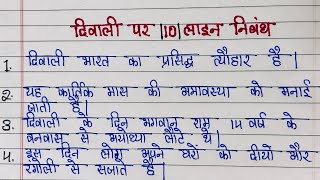 दिवाली पर |10| लाइन निबंध
1. दिवाली भारत का प्रसिद्ध त्यौहार है |
2. यह कार्तिक मास की अमावस्या को मनाई
जाती है |
3. दिवाली के दिन भगवान राम 14 वर्ष के
वनवास से अयोध्या लौटे थे |
4. इस दिन लोग अपने घरों को दीयों और
रंगोली से सजाते हैं |